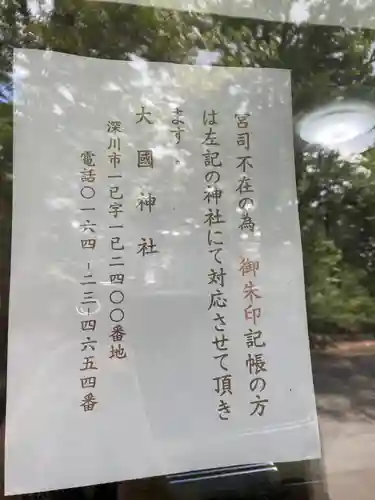 宮司不在の為　御朱印記帳の方
は左記の神社にて対応させて頂き
ます。
大國神社
深川市一已字一已二四〇〇番地
電話〇一六四－二三－四六五四番